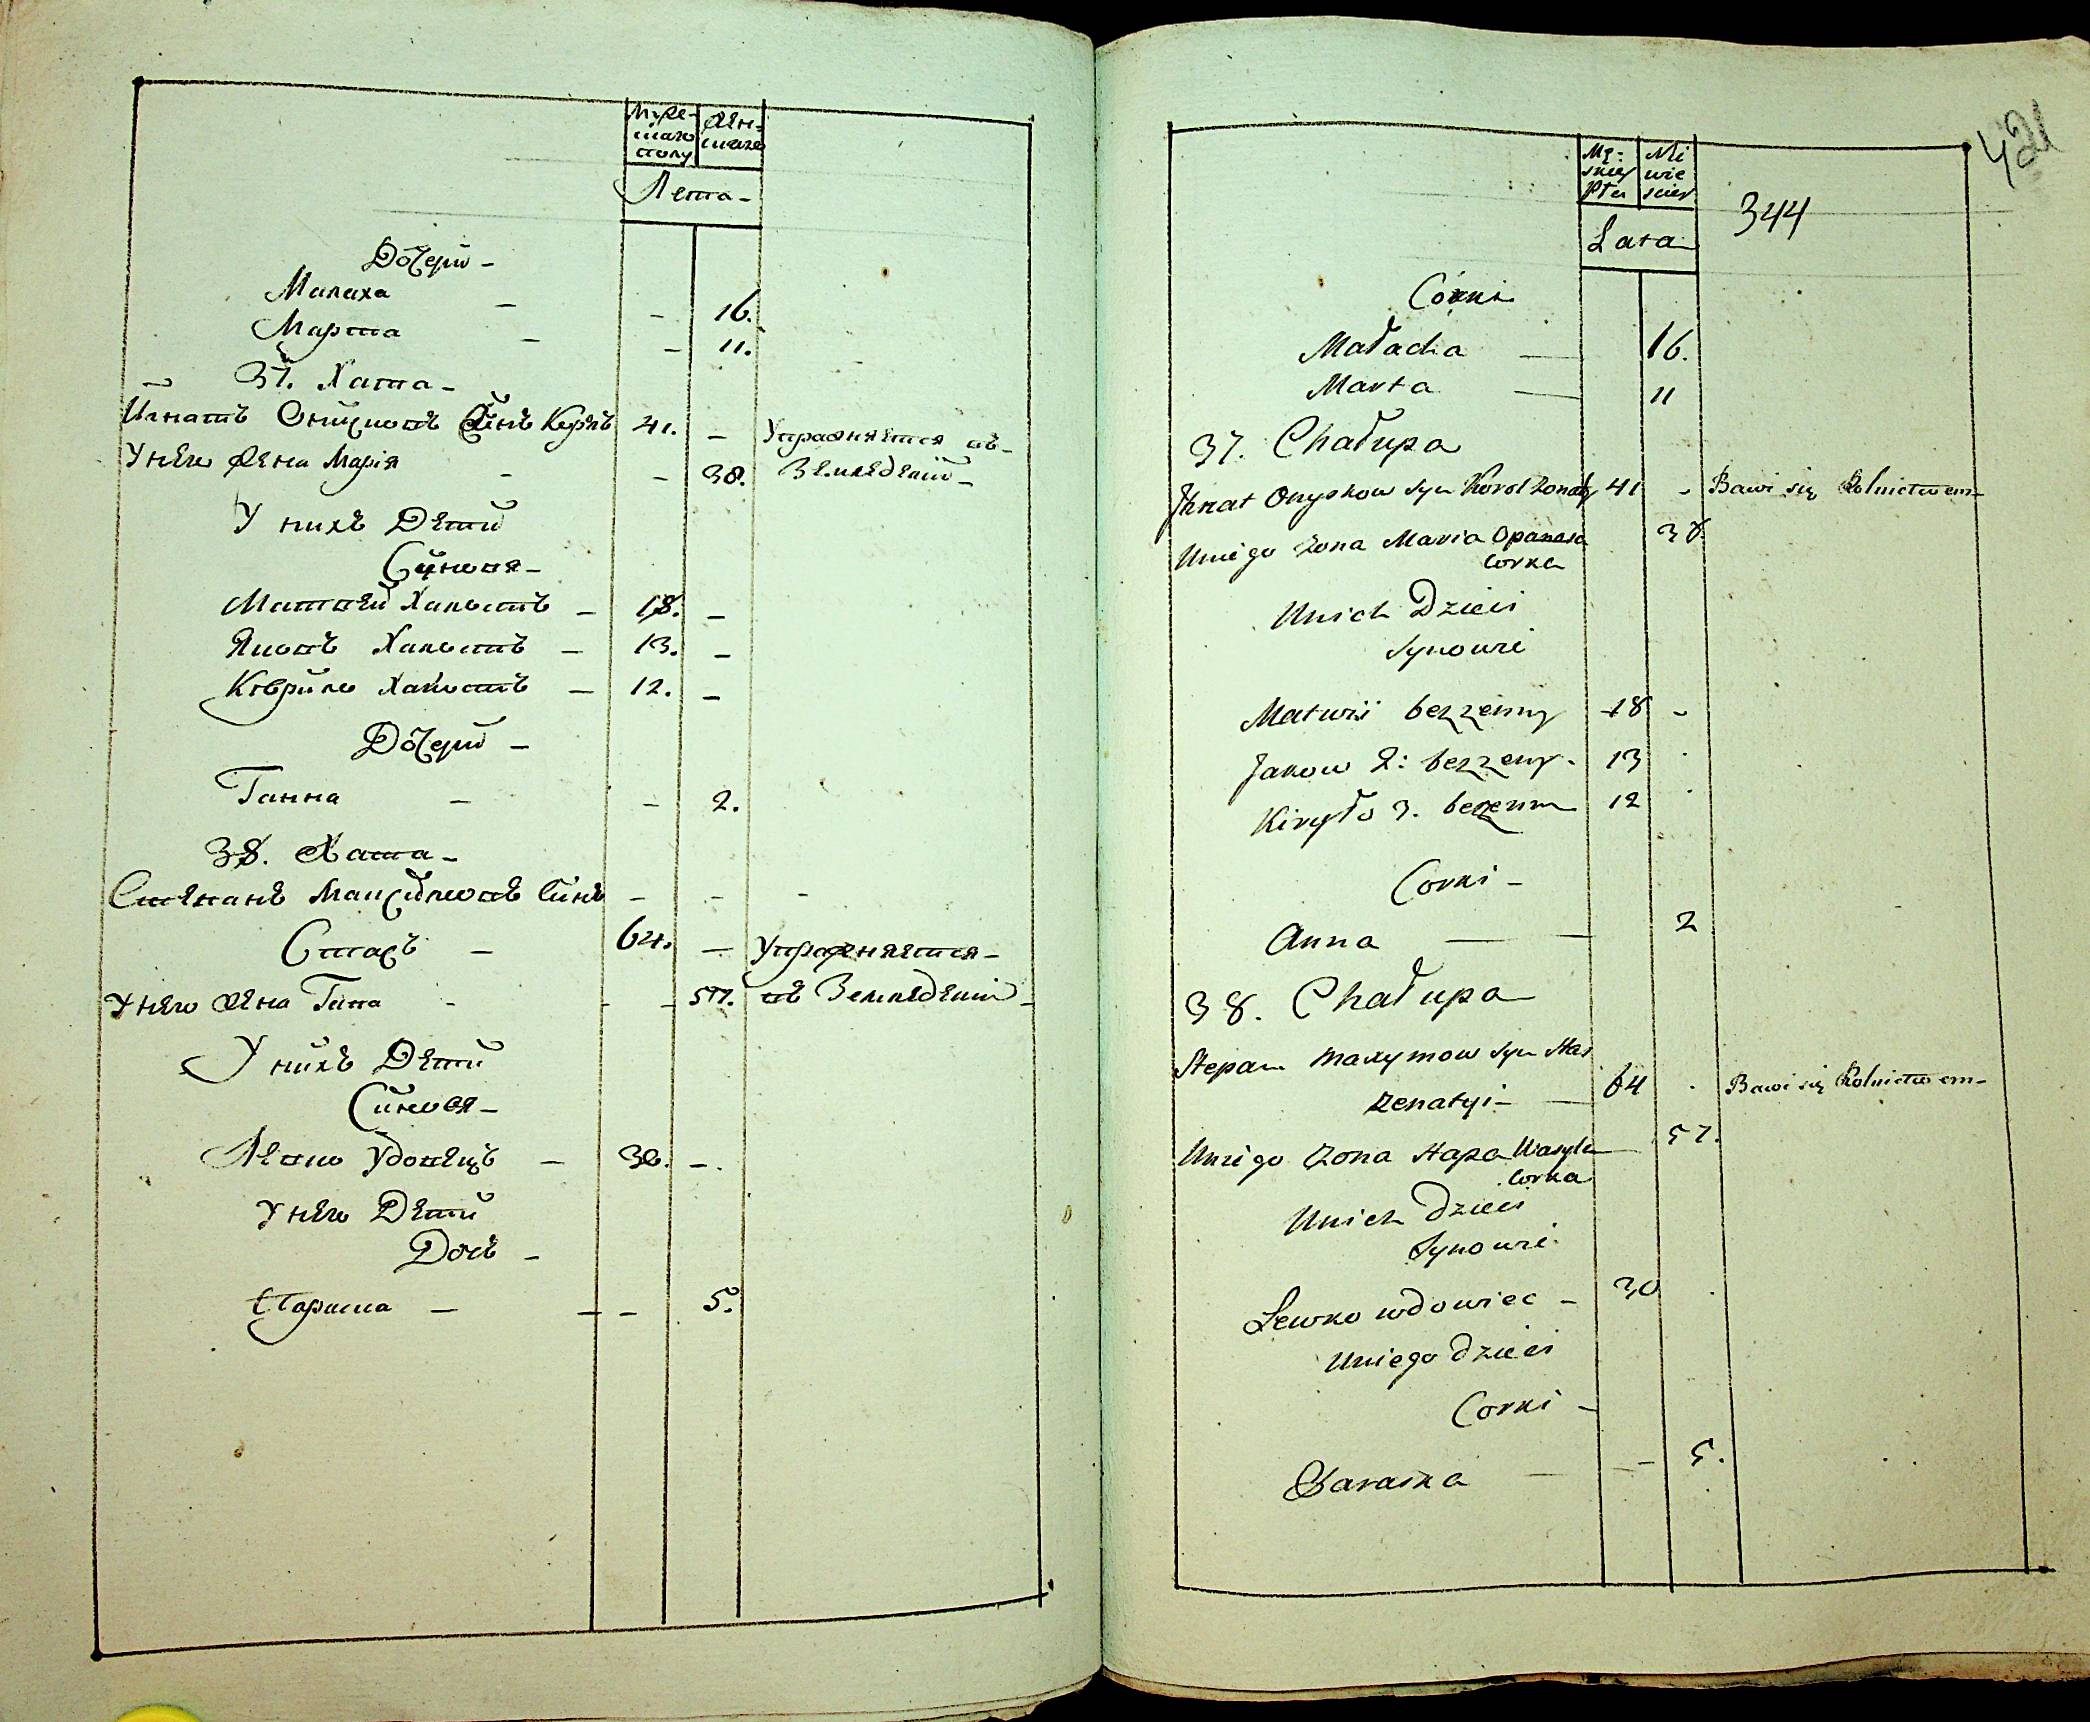 Муже-
скаго
полу
Жен-
скаго
Лета -
Дочери -
Малаха - - 16.
Марта - - 11.
37. Хата -
Игнатъ Онисковъ Сынъ 41. - Упражняется въ
У него жена Марія - - 38. Земледелии -
У нихъ Дети
Сыновя -
Матвей Халостъ - 18. -
Яковъ Халостъ - 13. -
Кирило Халостъ - 12. -
Дочери -
Ганна - - 2.
38. Хата -
Степанъ Максимовъ Синъ - - -
Стасъ - 64. - Упражняется -
У него жена Гапа - - - 57. въ Земледелии -
У нихъ Дети
Синовя -
Левко Удовецъ - 30. -
У него Дети
Дочь -
Параска - - - 5.
421
Mę:
skiey
Płci
Nie
wie
sciey
344
Lata
Córki
Małacha - 16.
Marta - 11
37. Chałupa
Ihnat Onyskow syn Korol Zonaty 41 - Bawi się Rolnictwem -
Uniego Zona Maria Opanasa 38.
Corka
Unich Dzieci
Synowie
Matwii bezzenny 18 -
Jakow 2: bezzeny - 13
Kiryło 3. 12
Corki -
Anna - 2
38. Chałupa
Stepan Maxymow syn Stas
Zenatyi - 64 . Bawi się Rolnictwem -
Uniego Zona Hapa Wasyla 57.
Corka
Unich Dzieci
Synowie
Lewko wdowiec - 30 .
Uniego Dzieci
Corki -
Paraska - - 5.